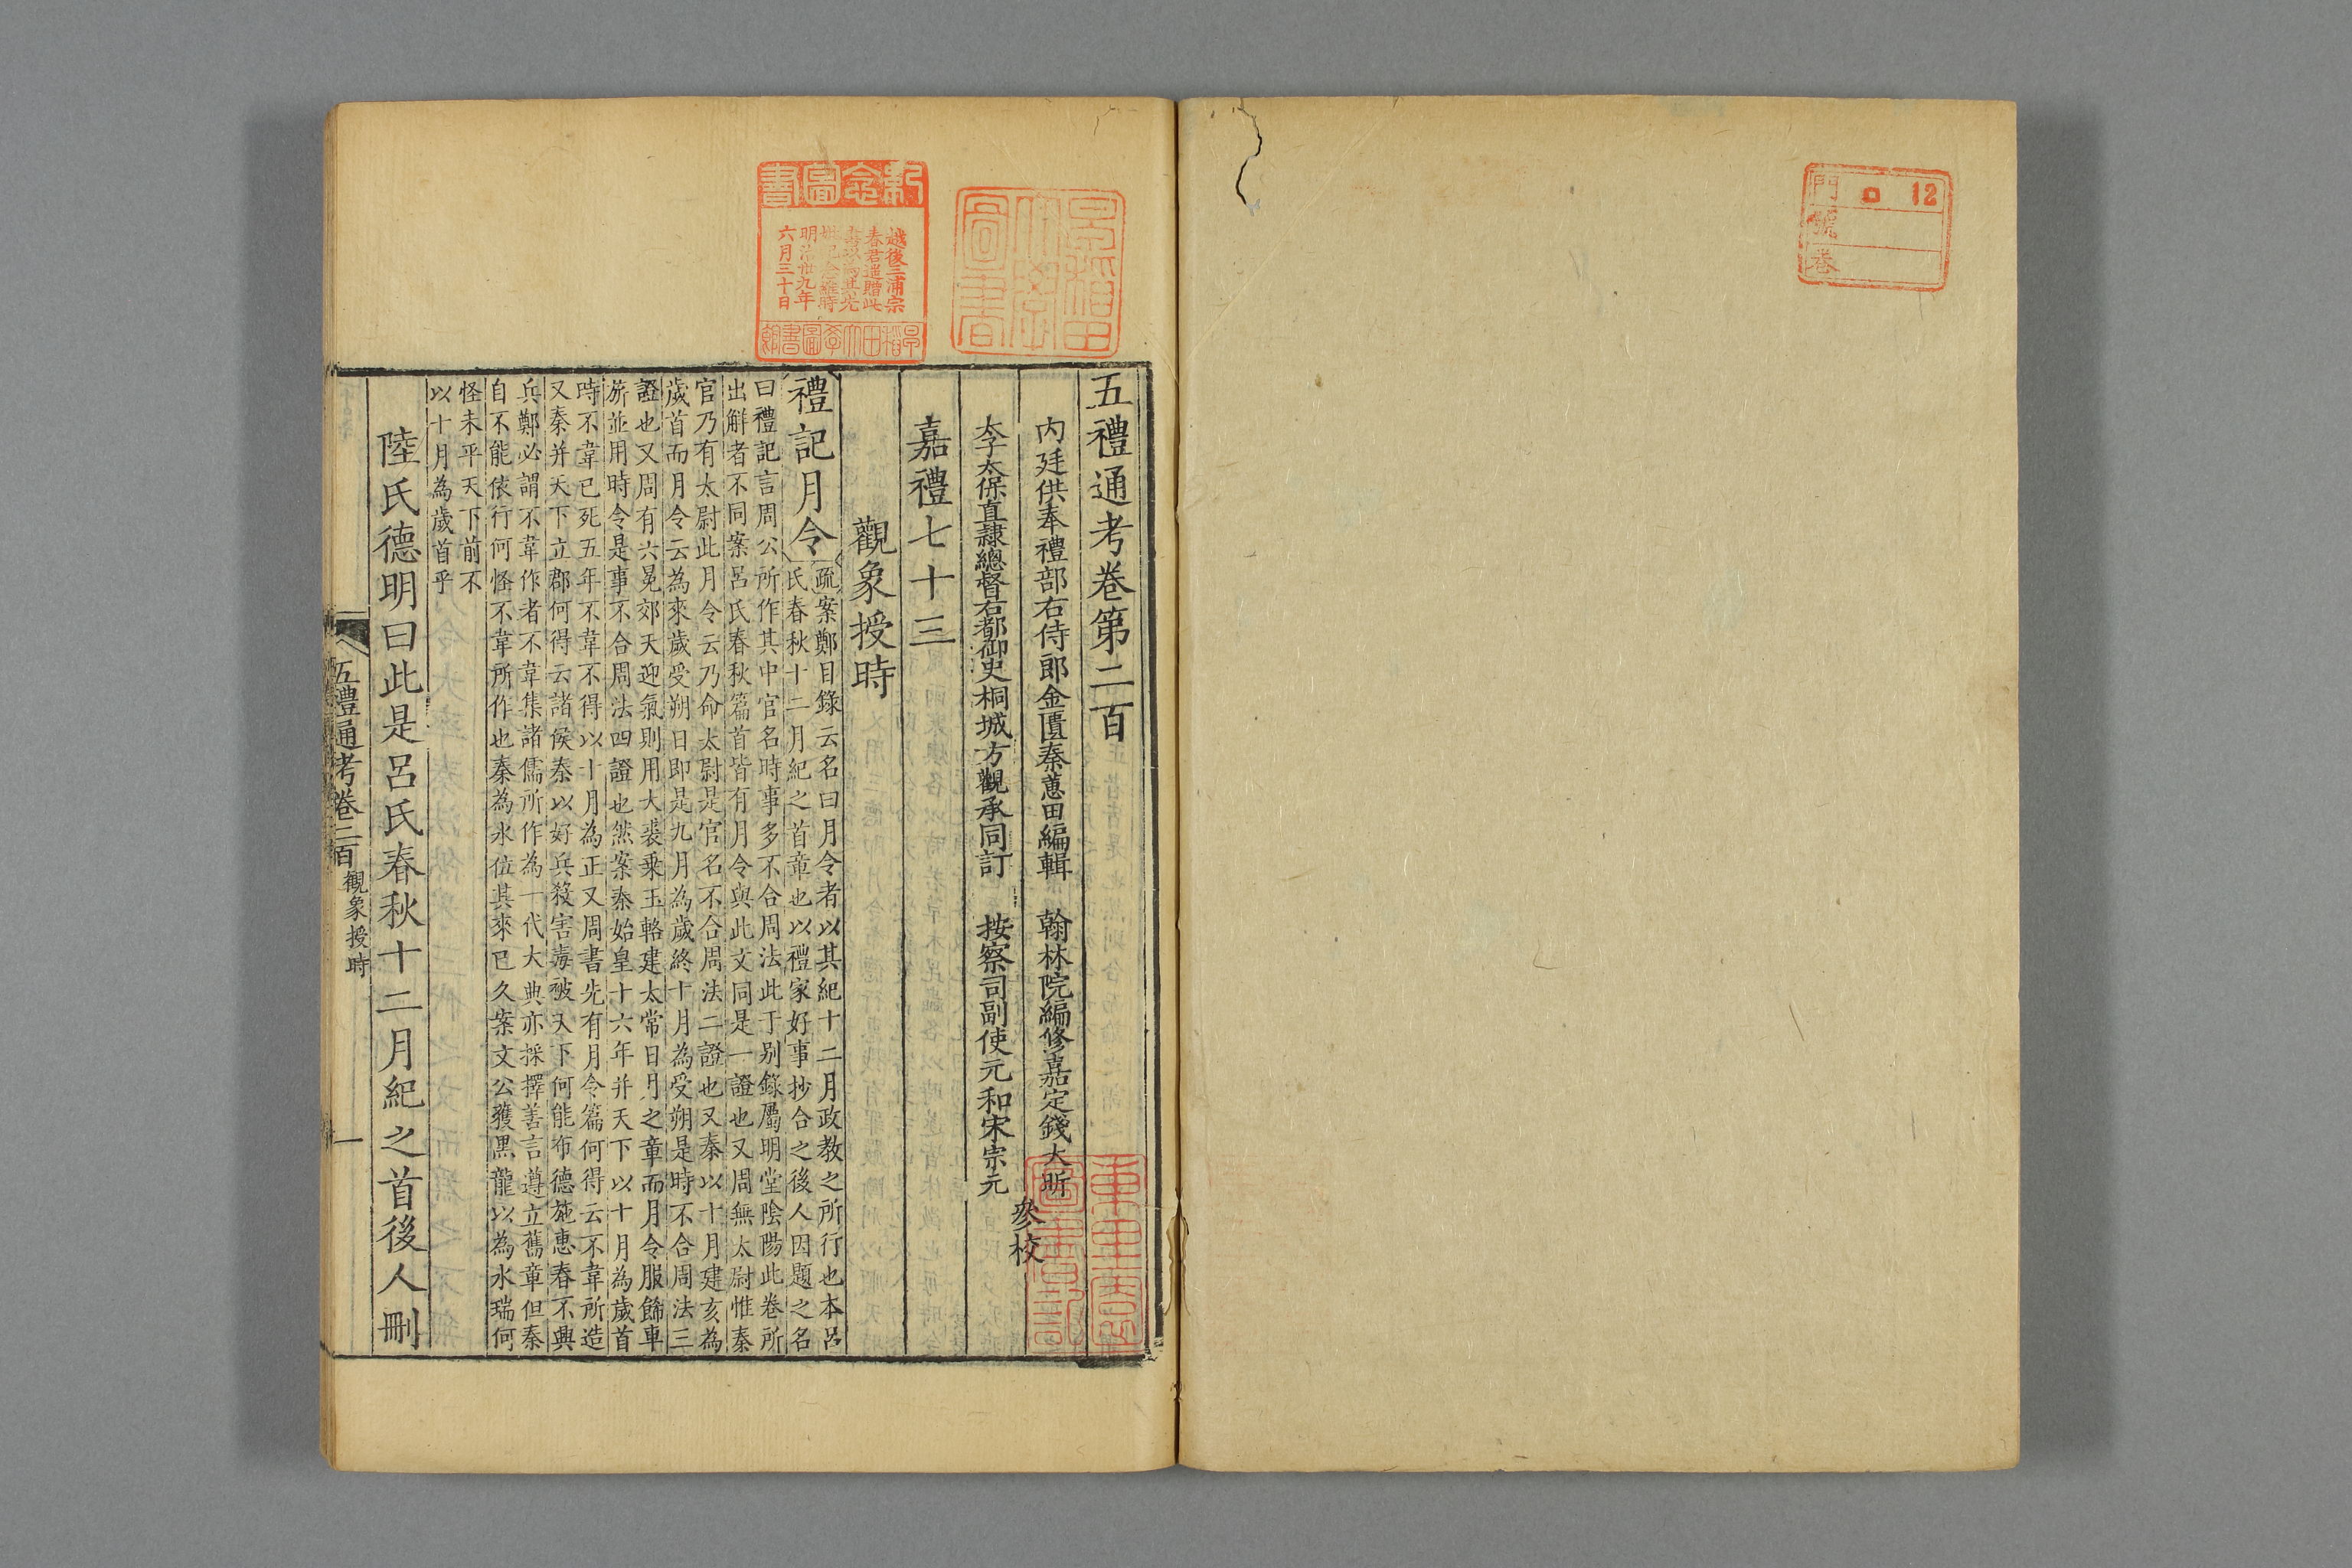 五禮通考卷第二百
内廷供奉禮部右侍郎金匱秦蕙田編輯　翰林院編修嘉定錢大昕
太子太保直隸總督右都御史桐城方觀承同訂　按察司副使元和宋宗元
參校
嘉禮七十三
觀象授時
禮記月令
疏案鄭目錄云名曰月令者以其紀十二月政教之所行也本呂
氏春秋十二月紀之首章也以禮家好事抄合之後人因題之名
曰禮記言周公所作其中官名時事多不合周法此于别錄屬明堂陰陽此卷所
出解者不同案呂氏春秋篇首皆有月令與此文同是一證也又周無太尉惟秦
官乃有太尉此月令云乃命太尉是官名不合周法二證也又秦以十月建亥為
歲首而月令云為來歲受朔日即是九月為歲終十月為受朔是時不合周法三
證也又周有六冕郊天迎氣則用大裘乘玉輅建太常日月之章而月令服飾車
旂並用時令是事不合周法四證也然案秦始皇十六年并天下以十月為歲首
時不韋已死五年不韋不得以十月為正又周書先有月令篇何得云不韋所造
又秦并天下立郡何得云諸侯秦以好兵殺害毒被天下何能布德施惠春不興
兵鄭必謂不韋作者不韋集諸儒所作為一代大典亦採擇善言遵立舊章但秦
自不能依行何怪不韋所作也秦為水位其來已久案文公獲黑龍以為水瑞何
怪未平天下前不
以十月為歲首乎
陸氏德明曰此是呂氏春秋十二月紀之首後人刪
五禮通考卷二百　觀象授時　一
紀念圖書
越後三浦宗
春君遥贈此
明治卅九年
六月三十日
早稻田大學圖書館
早稻田大學圖書
12
門
號
卷